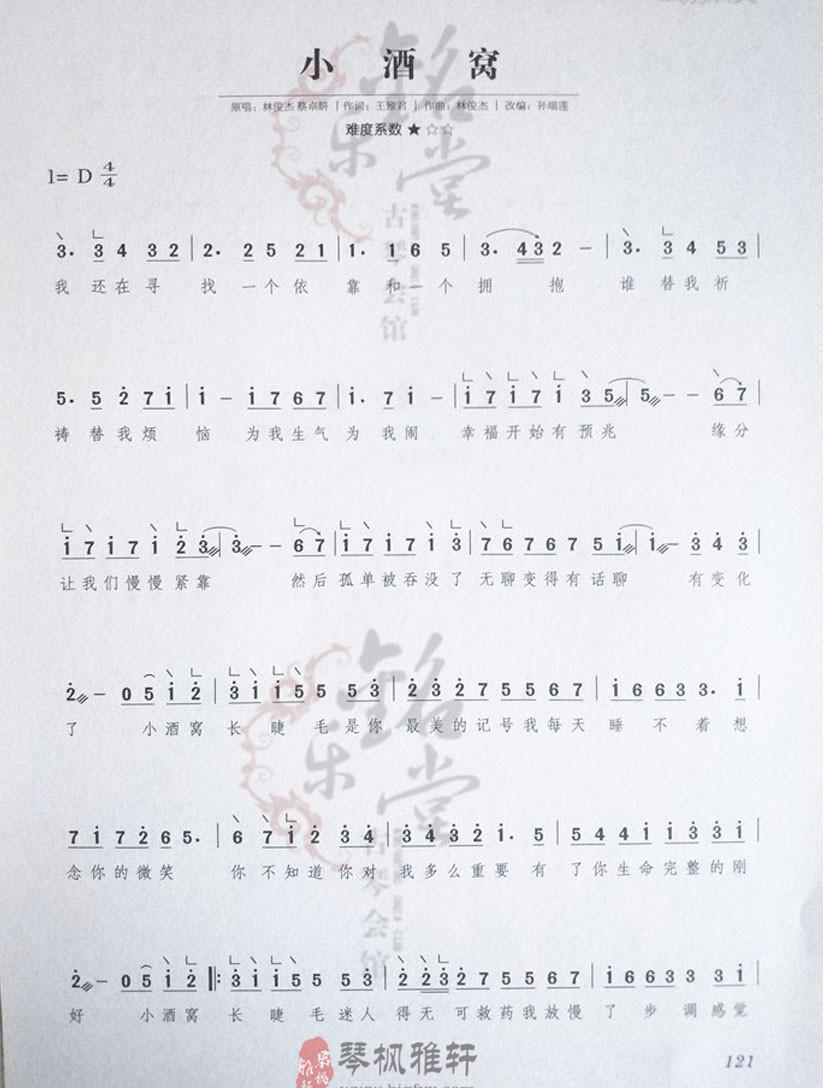 小酒窝
原唱：林俊杰 蔡卓妍 | 作词：王雅君 | 作曲：林俊杰 | 改编：孙瑞莲
难度系数 ★☆☆
1= D 4/4
3. 3 4 3 2 | 2. 2 5 2 1 | 1. 1 6 5 | 3. 4 3 2 – | 3. 3 4 5 3 |
我 还 在 寻 找 一 个 依 靠 和 一 个 拥 抱 谁 替 我 祈
5. 5 2 7 1 | 1 – 1 7 6 7 | 1. 7 1 – | 1 7 1 7 1 3 5 | 5 – – 6 7 |
祷 替 我 烦 恼 为 我 生 气 为 我 闹 幸 福 开 始 有 预 兆 缘 分
1 7 1 7 1 2 3 | 3 – – 6 7 | 1 7 1 7 1 3 | 7 6 7 6 7 5 1 | 1 – 3 4 3 |
让 我 们 慢 慢 紧 靠 然 后 孤 单 被 吞 没 了 无 聊 变 得 有 话 聊 有 变 化
2 – 0 5 1 2 | 3 1 1 5 5 5 3 | 2 3 2 7 5 5 6 7 | 1 6 6 3 3 3. 1 |
了 小 酒 窝 长 睫 毛 是 你 最 美 的 记 号 我 每 天 睡 不 着 想
7 1 7 2 6 5. | 6 7 1 2 3 4 | 3 4 3 2 1. 5 | 5 4 4 1 1 3 3 1 |
念 你 的 微 笑 你 不 知 道 你 对 我 多 么 重 要 有 了 你 生 命 完 整 的 刚
2 – 0 5 1 2 ‖: 3 1 1 5 5 5 3 | 2 2 3 2 7 5 5 6 7 | 1 6 6 3 3 3 1 |
好 小 酒 窝 长 睫 毛 迷 人 得 无 可 救 药 我 放 慢 了 步 调 感 觉
琴枫雅轩
121
铭乐堂
古琴会馆
铭乐堂
古琴会馆